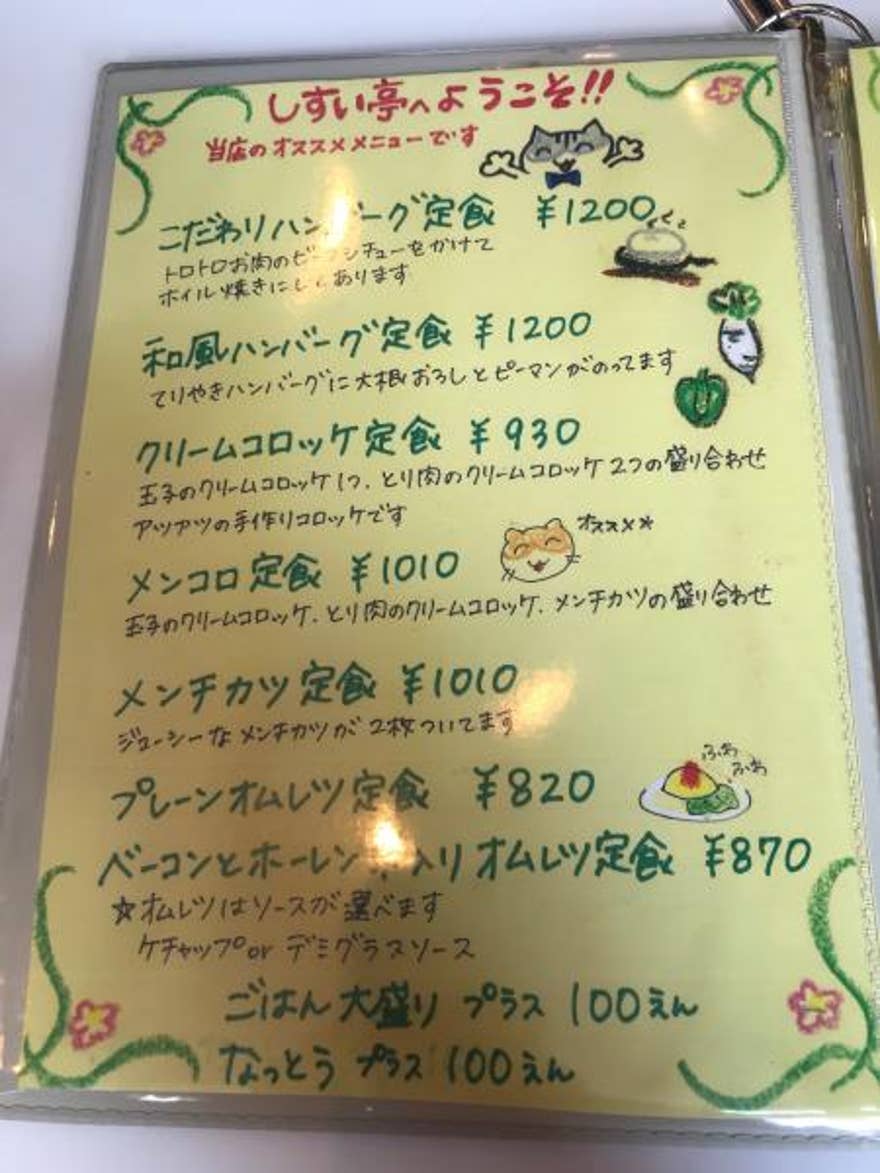 しすい亭へようこそ!!
当店のオススメメニューです
こだわりハンバーグ定食 ¥1200
トロトロお肉のビーフシチューをかけて
ホイル焼きにしてあります
和風ハンバーグ定食 ¥1200
てりやきハンバーグに大根おろしとピーマンがのってます
クリームコロッケ定食 ¥930
玉子のクリームコロッケ1つ、とり肉のクリームコロッケ2つの盛り合わせ
アツアツの手作りコロッケです
オススメ*
メンコロ定食 ¥1010
玉子のクリームコロッケ、とり肉のクリームコロッケ、メンチカツの盛り合わせ
メンチカツ定食 ¥1010
ジューシーなメンチカツが2枚ついてます
プレーンオムレツ定食 ¥820
ふわ
ふわ
ベーコンとホーレン草入りオムレツ定食 ¥870
☆オムレツはソースが選べます
ケチャップor デミグラスソース
ごはん大盛り プラス 100えん
なっとう プラス 100えん